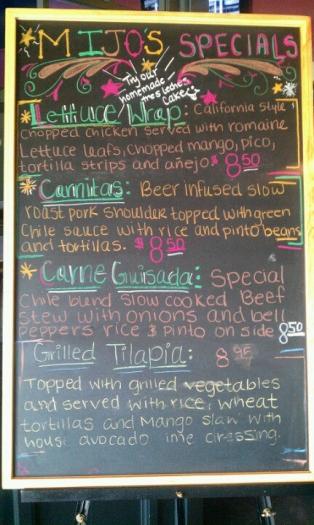 MIJO'S SPECIALS
Try our
homemade
tres leches
cake
Lettuce Wrap: California style
chopped chicken served with romaine
Lettuce leafs, chopped mango, pico,
tortilla strips and añejo $ 8.50
Carnitas: Beer infused slow
roast pork shoulder topped with green
Chile sauce with rice and pinto beans
and tortillas. $ 8.50
Carne Guisada: Special
Chile blend slow cooked Beef
stew with onions and bell
peppers rice & pinto on side 8.50
Grilled Tilapia: 8.95
Topped with grilled vegetables
and served with rice, wheat
tortillas and Mango slaw with
house avocado lime dressing.